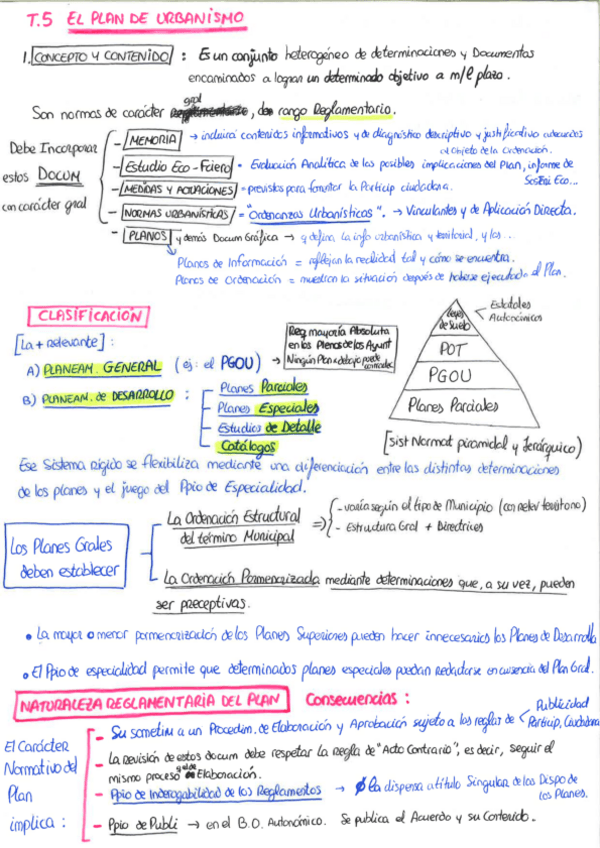 T.5 EL PLAN DE URBANISMO
1. CONCEPTO Y CONTENIDO : Es un conjunto heterogéneo de determinaciones y Documentos
encaminados a lograr un determinado objetivo a m/l plazo.
Son normas de carácter gral, de rango Reglamentario.
Debe Incorporar
estos DOCUM
con carácter gral
- MEMORIA → incluirá contenidos informativos y de diagnóstico descriptivo y justificativo adecuados
al Objeto de la Ordenación.
- Estudio Eco-Fciero = Evaluación Analítica de las posibles implicaciones del Plan, informe de
Sosten Eco...
- MEDIDAS Y ACTUACIONES = previstas para fomentar la Particip ciudadana.
- NORMAS URBANÍSTICAS = "Ordenanzas Urbanísticas". → Vinculantes y de Aplicación Directa.
- PLANOS y demás Docum Gráfica → q defina la info urbanística y territorial, y los...
Planos de Información = reflejan la realidad tal y cómo se encuentra.
Planos de Ordenación = muestran la situación después de haberse ejecutado el Plan.
CLASIFICACIÓN
[La + relevante] :
A) PLANEAM. GENERAL (ej: el PGOU) →
Req mayoría Absoluta
en los Plenos de los Ayunt
Ningún Plan x debajo puede
contradec
B) PLANEAM. de DESARROLLO :
- Planes Parciales
- Planes Especiales
- Estudios de Detalle
- Catálogos
Leyes
de suelo
Estatales
Autonómicas
POT
PGOU
Planes Parciales
[sist Normat piramidal y Jerárquico)
Ese Sistema rígido se flexibiliza mediante una diferenciación entre las distintas determinaciones
de los planes y el juego del Ppio de Especialidad.
Los Planes Grales
deben establecer
La Ordenación Estructural
del término Municipal
⇒ - varía según el tipo de Municipio (con relev territorio)
- Estructura Gral + Directrices
La Ordenación Pormenorizada mediante determinaciones que, a su vez, pueden
ser preceptivas.
• La mayor o menor pormenorización de los Planes Superiores pueden hacer innecesarios los Planes de Desarrollo
• El Ppio de especialidad permite que determinados planes especiales puedan redactarse en ausencia del Plan Gral.
NATURALEZA REGLAMENTARIA DEL PLAN Consecuencias :
El Carácter
Normativo del
Plan
implica :
- Su sometim a un Procedim. de Elaboración y Aprobación sujeto a las reglas de
Publicidad
Particip. Ciudadana
- La Revisión de estos docum debe respetar la Regla de "Acto Contrario", es decir, seguir el
mismo proceso q el de Elaboración.
- Ppio de Inderogabilidad de los Reglamentos → Ø la dispensa a título Singular de las Dispo de
los Planes.
- Ppio de Publi → en el B.O. Autonómico. Se publica el Acuerdo y su Contenido.